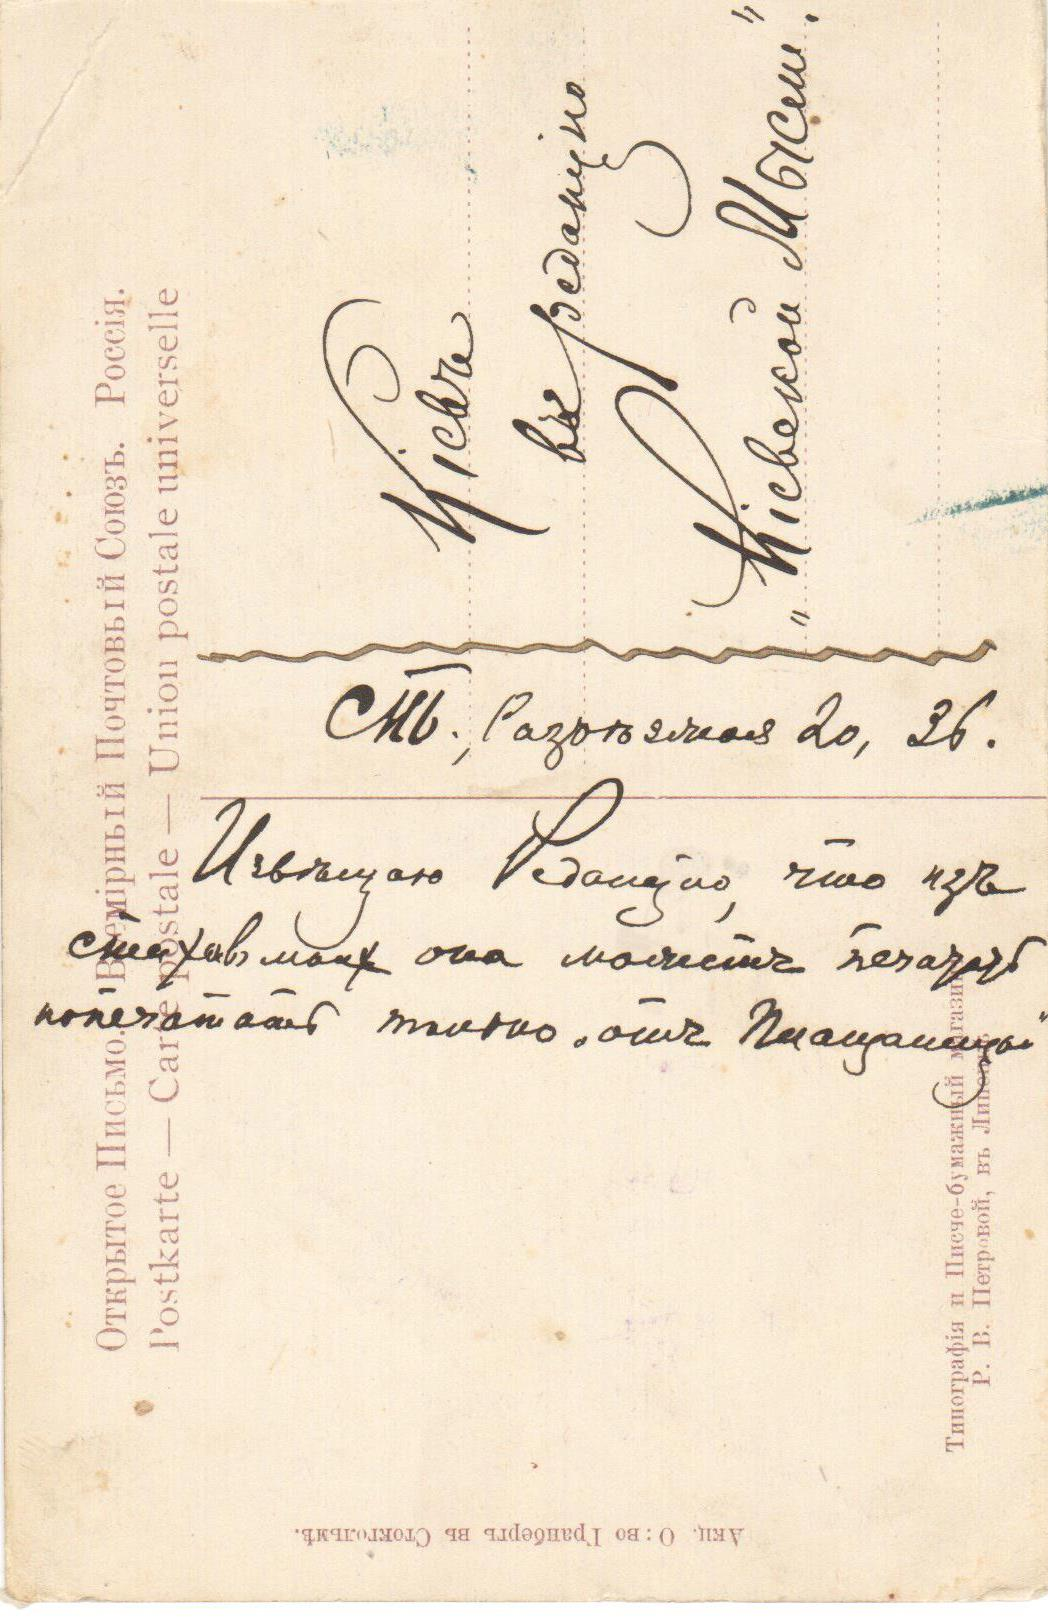 Открытое Письмо. Всемірный Почтовый Союзъ. Россія.
Postkarte — Carte postale — Union postale universelle
Кіевъ
въ редакцію
„Кіевской Мысли“.
СПб., Разъѣзжая 20, 36.
Извѣщаю Редакцію, что изъ
стиховъ моихъ она можетъ
напечатать только „
Типографія и Писче-бумажный магазинъ
Р. В. Петровой, въ
Акц. О:во Гранбергъ въ Стокгольмѣ.